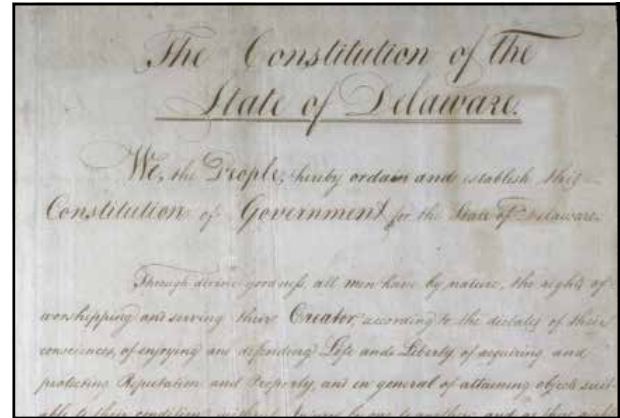 The Constitution of the
State of Delaware.
We, the People, hereby ordain and establish this
Constitution of Government for the State of Delaware.
Through divine goodness, all men have by nature, the rights of
worshipping and serving their Creator, according to the dictates of their
consciences, of enjoying and defending Life and Liberty of acquiring and
protecting Reputation and Property, and in general of attaining objects suit
able to their condition, without injury by one to another; and as